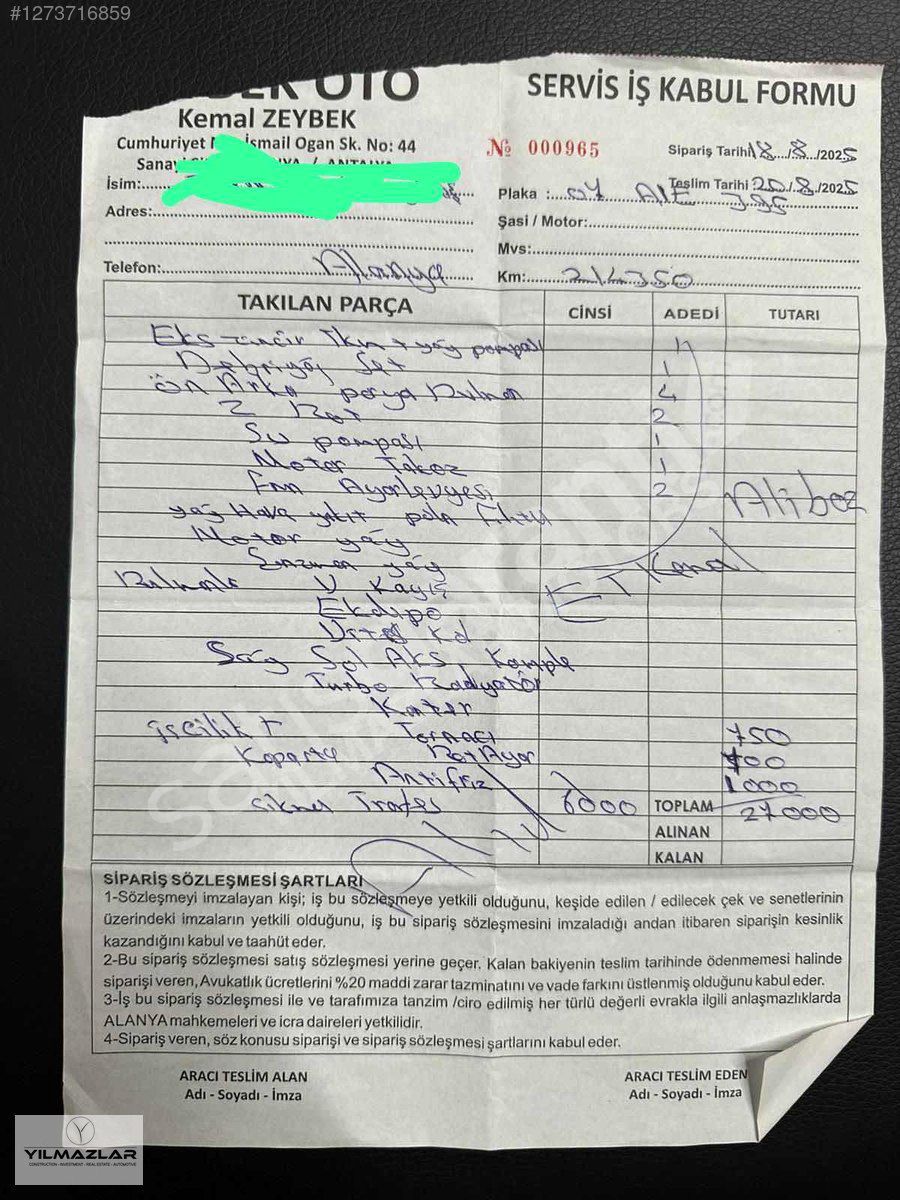 #1273716859
OTO
SERVİS İŞ KABUL FORMU
Kemal ZEYBEK
Cumhuriyet İsmail Ogan Sk. No: 44
№ 000965
Sipariş Tarihi 18/8/2025
Sanayi / ANTALYA
Teslim Tarihi 20/8/2025
İsim:
Plaka : 07
Adres:
Şasi / Motor:
Mvs:
Telefon: Alanya
Km: 214350
TAKILAN PARÇA CİNSİ ADEDİ TUTARI
yağ pompası 1
Debriyaj Set 1
Ön Arka porya 4
2 Rot 2
Su pompası 1
Motor Takoz 1
2
yağ Hava yakıt
Motor yağ
yağ
V Kayış
Sağ Sol Aks Komple
Turbo Radyatör
Karter
işçilik + Tornacı 750
Rot Ayar
Antifriz 1000
6000 TOPLAM 27000
ALINAN
KALAN
SİPARİŞ SÖZLEŞMESİ ŞARTLARI
1-Sözleşmeyi imzalayan kişi; iş bu sözleşmeye yetkili olduğunu, keşide edilen / edilecek çek ve senetlerinin
üzerindeki imzaların yetkili olduğunu, iş bu sipariş sözleşmesini imzaladığı andan itibaren siparişin kesinlik
kazandığını kabul ve taahüt eder.
2-Bu sipariş sözleşmesi satış sözleşmesi yerine geçer. Kalan bakiyenin teslim tarihinde ödenmemesi halinde
siparişi veren, Avukatlık ücretlerini %20 maddi zarar tazminatını ve vade farkını üstlenmiş olduğunu kabul eder.
3-İş bu sipariş sözleşmesi ile ve tarafımıza tanzim /ciro edilmiş her türlü değerli evrakla ilgili anlaşmazlıklarda
ALANYA mahkemeleri ve icra daireleri yetkilidir.
4-Sipariş veren, söz konusu siparişi ve sipariş sözleşmesi şartlarını kabul eder.
ARACI TESLİM ALAN
ARACI TESLİM EDEN
Adı - Soyadı - İmza
Adı - Soyadı - İmza
YILMAZLAR
CONSTRUCTION - INVESTMENT - REAL ESTATE - AUTOMOTIVE